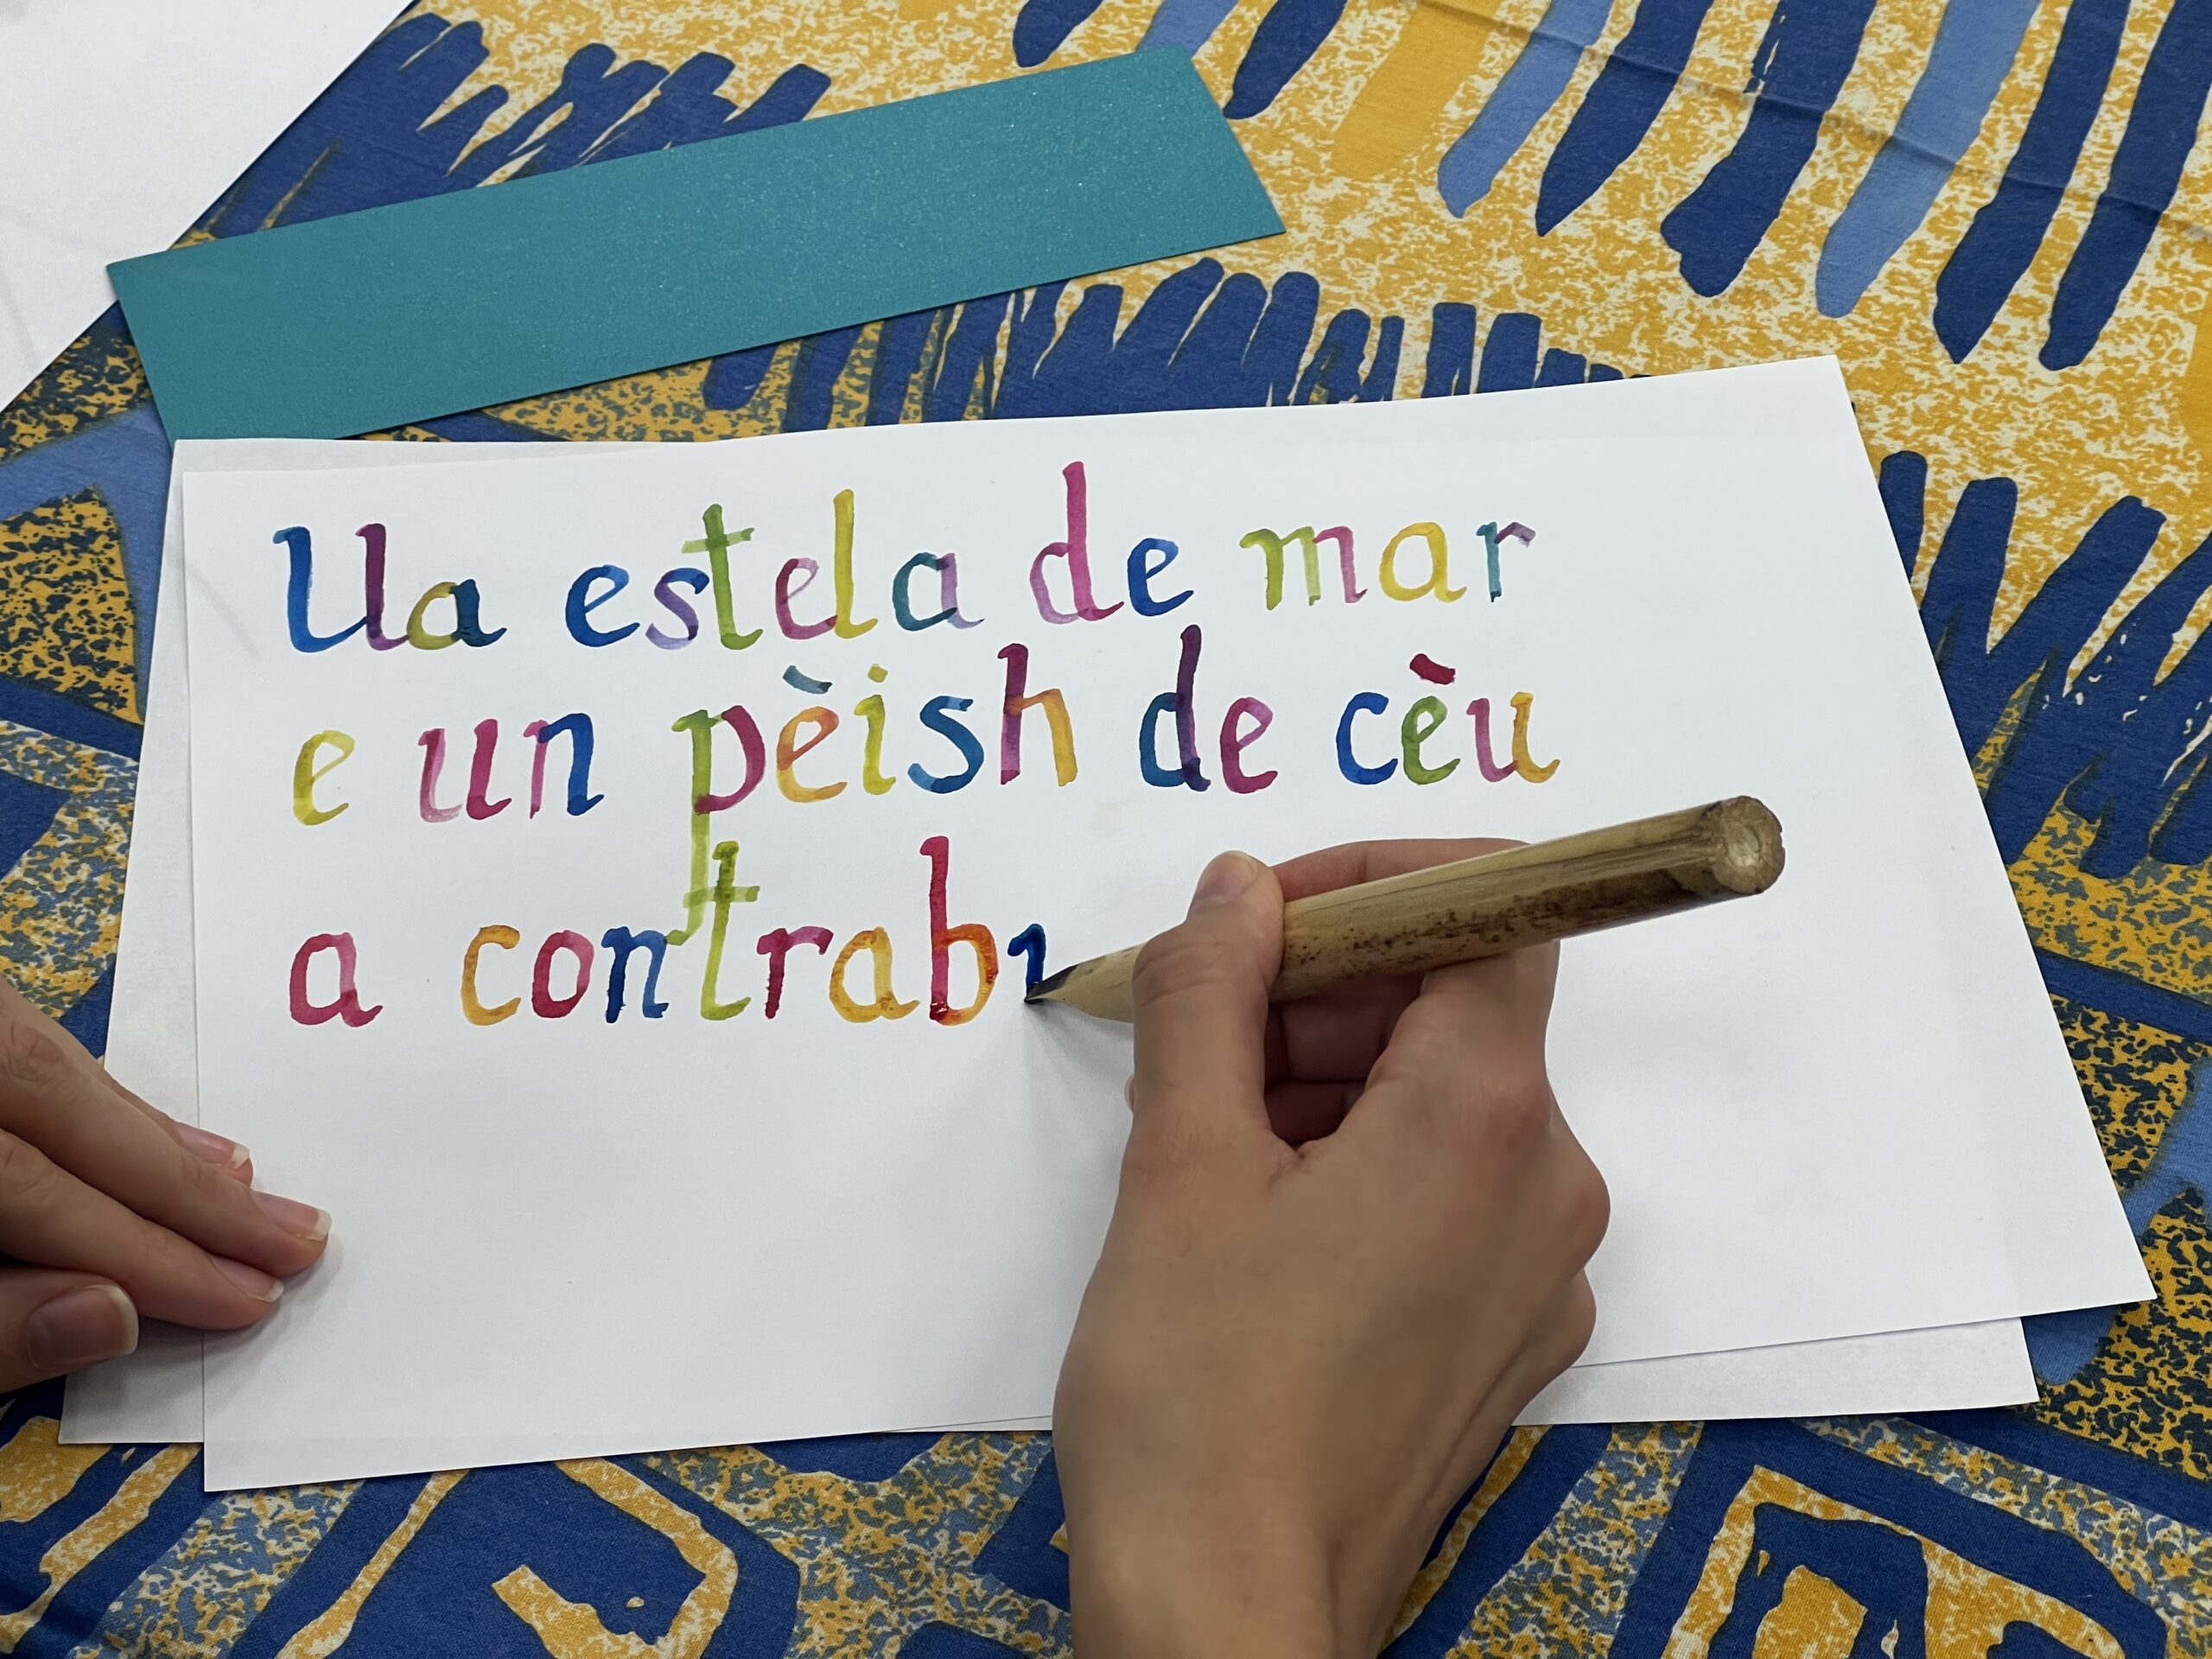 Ua estela de mar
e un pèish de cèu
a contrab